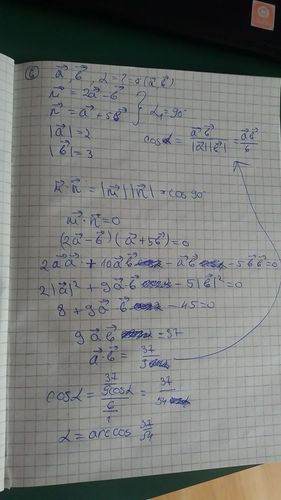 6) a⃗, b⃗, α = ? = ∢(a⃗, b⃗)
m⃗ = 2a⃗ - b⃗
n⃗ = a⃗ + 5b⃗ } α₁ = 90°
|a⃗| = 2
|b⃗| = 3
cosα = a⃗b⃗ / |a⃗||b⃗| = a⃗b⃗ / 6
m⃗ · n⃗ = |m⃗| |n⃗| · cos 90°
m⃗ · n⃗ = 0
(2a⃗ - b⃗)(a⃗ + 5b⃗) = 0
2a⃗a⃗ + 10a⃗b⃗ - a⃗b⃗ - 5b⃗b⃗ = 0
2|a⃗|² + 9a⃗·b⃗ - 5|b⃗|² = 0
8 + 9a⃗·b⃗ - 45 = 0
9a⃗b⃗ = 37
a⃗·b⃗ = 37/9
cosα = 37/9 / 6/1 = 37/54
α = arccos 37/54